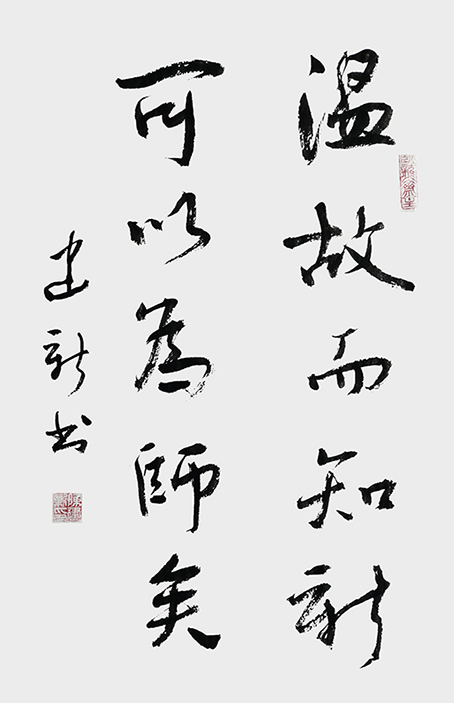 温故而知新
可以為師矣
建新书